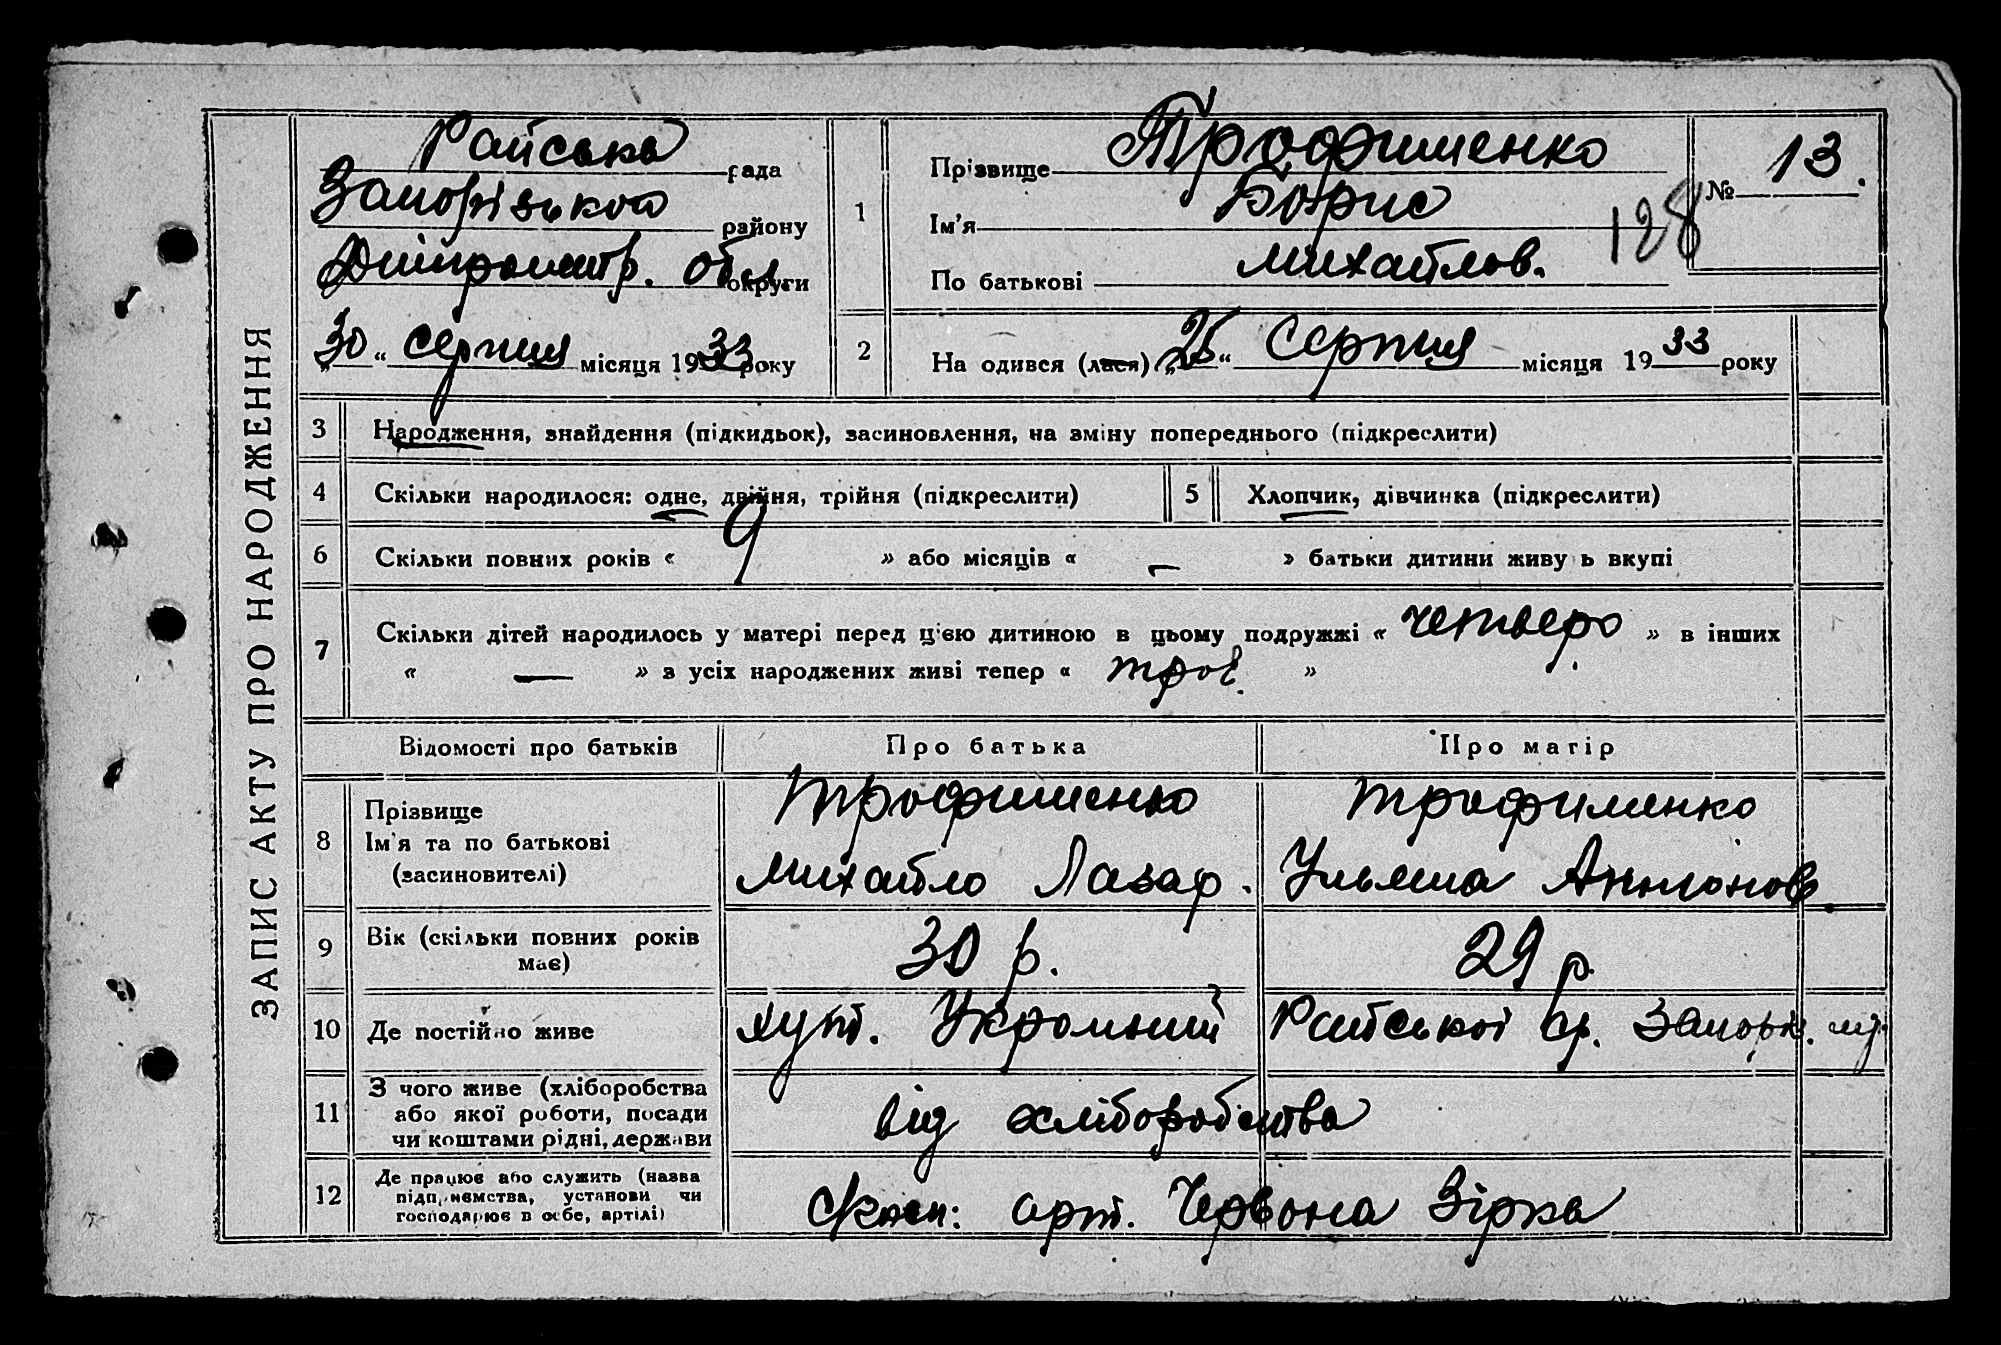 ЗАПИС АКТУ ПРО НАРОДЖЕННЯ
Райська рада
Запорізького району
Дніпропетр. обл. округи
„30“ серпня місяця 1933 року
1
Прізвище Трофименко
Ім'я Борис
По батькові Михайлов.
№ 13.
128
2
На одився (лася) „25“ Серпня місяця 1933 року
3 Народження, знайдення (підкидьок), засиновлення, на зміну попереднього (підкреслити)
4 Скільки народилося: одне, двійня, трійня (підкреслити)
5 Хлопчик, дівчинка (підкреслити)
6 Скільки повних років « 9 » або місяців « — » батьки дитини живу ь вкупі
7 Скільки дітей народилось у матері перед цією дитиною в цьому подружжі « четверо » в інших
« — » з усіх народжених живі тепер « троє »
Відомості про батьків Про батька Про матір
8 Прізвище
Ім'я та по батькові
(засиновителі)
Трофименко
Михайло Лазар.
Трофименко
Ульяна Антонов.
9 Вік (скільки повних років
має)
30 р. 29 р.
10 Де постійно живе хут. Укромний Райської ср. Запоріз.
11 З чого живе (хліборобства
або якої роботи, посади
чи коштами рідні, держави
від хліборобства
12 Де працює або служить (назва
підприємства, установи чи
господарює в себе, артілі)
арт. Червона Зірка